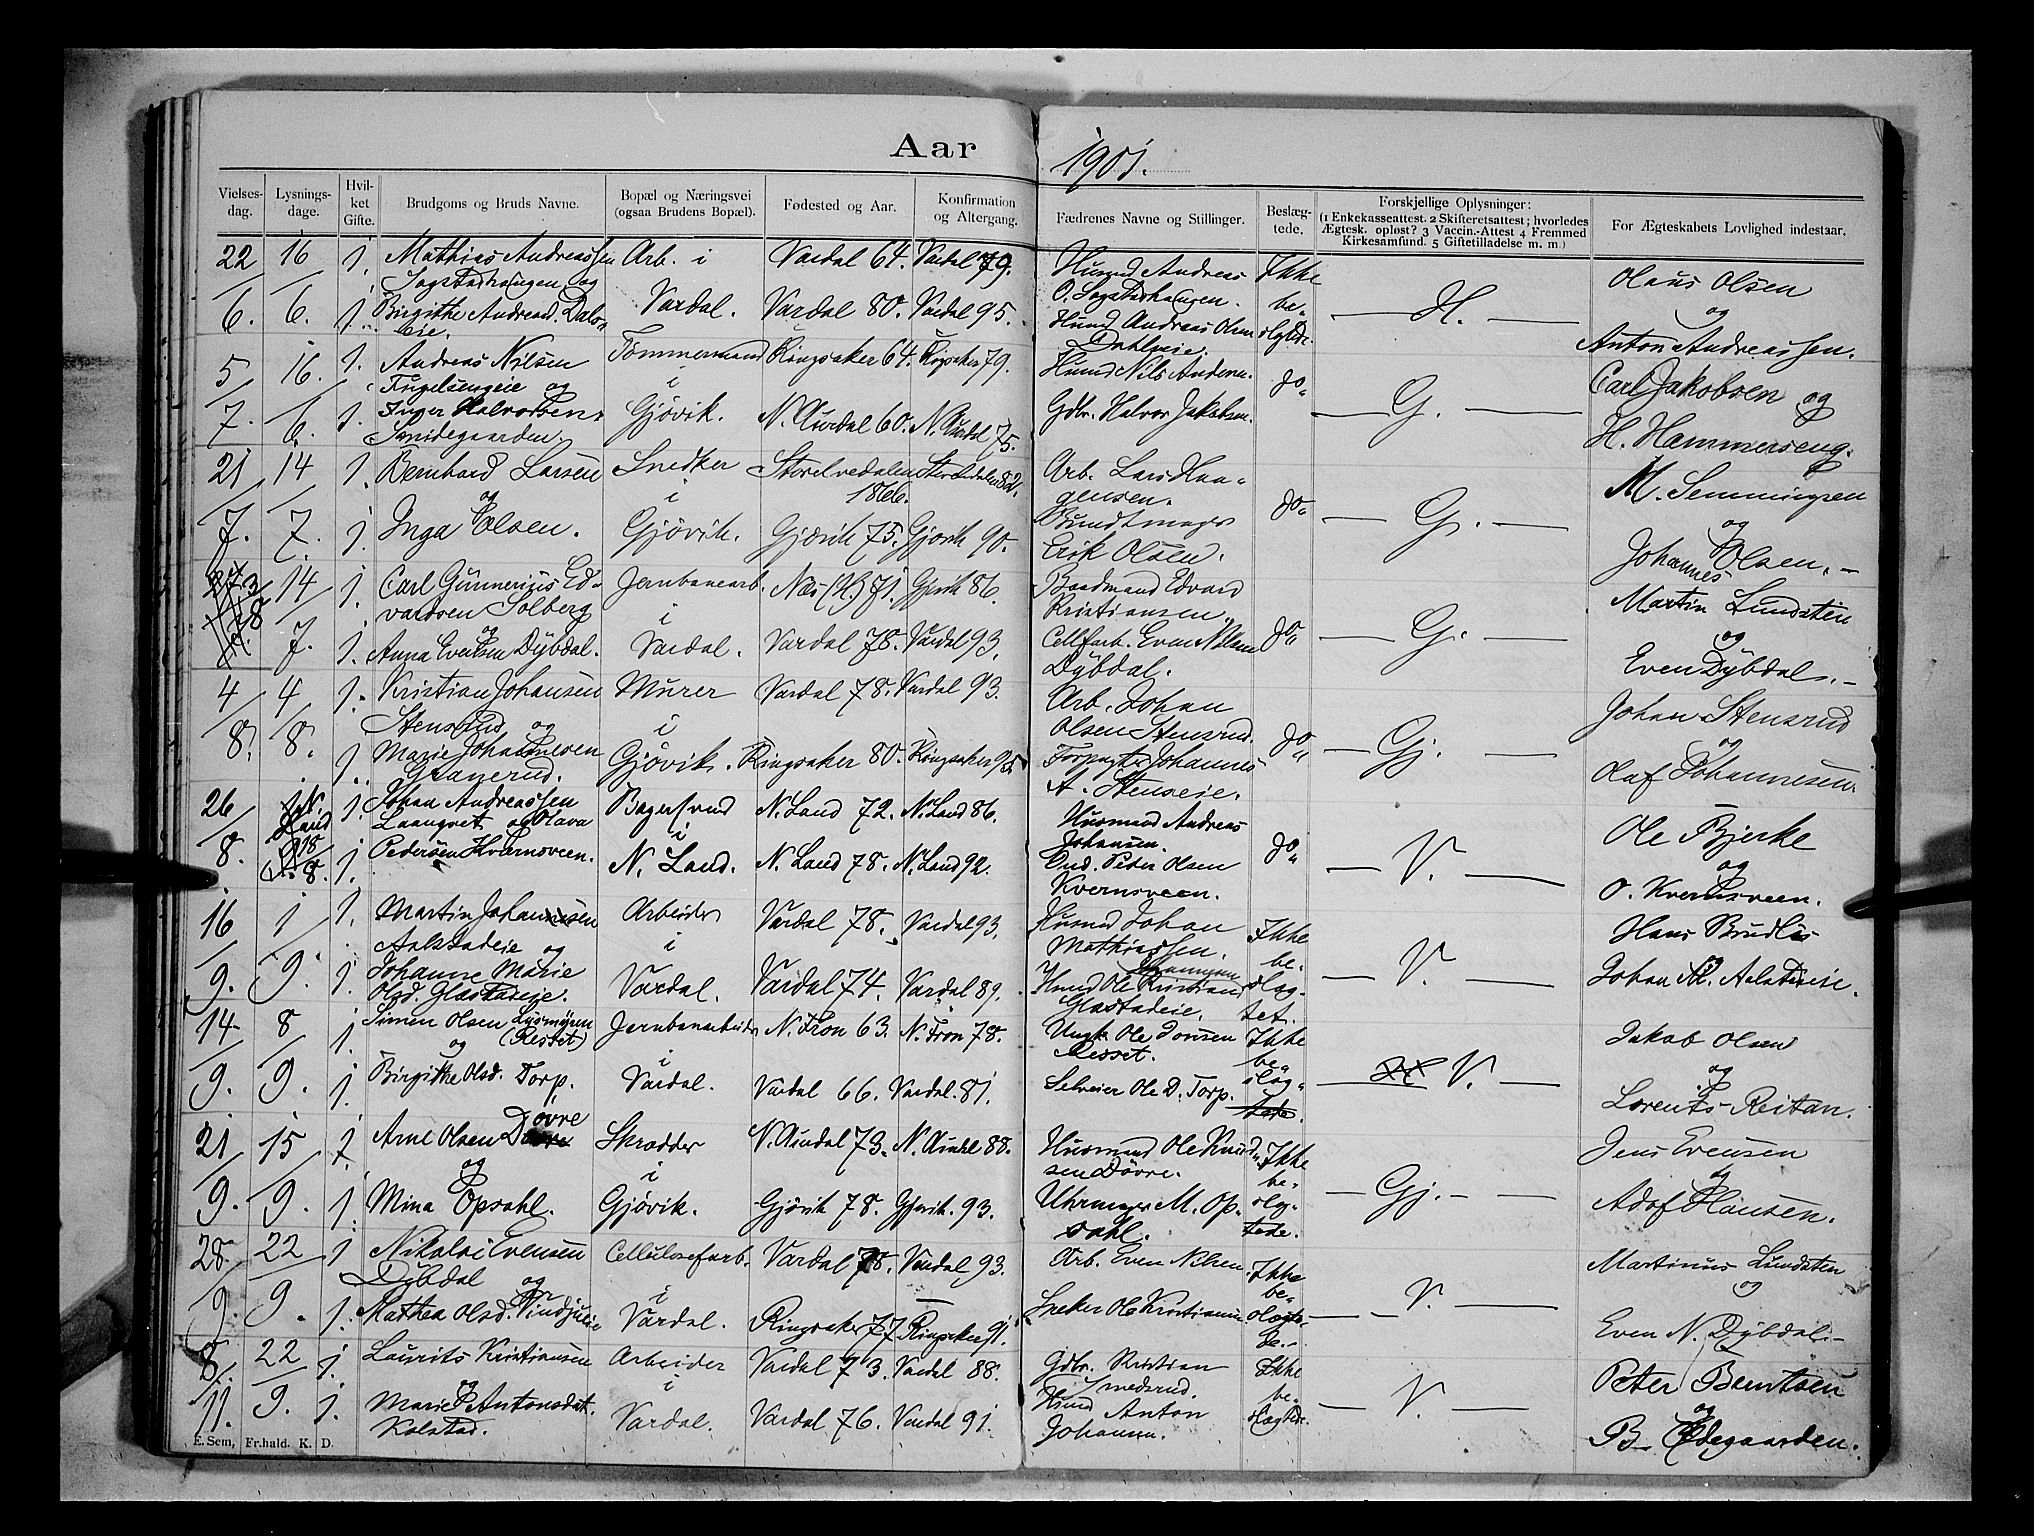 Aar 1901.
Vielses-dag. Lysnings-dage. Hvil-ket Gifte. Brudgoms og Bruds Navne. Bopæl og Næringsvei (ogsaa Brudens Bopæl). Fødested og Aar. Konfirmation og Altergang. Fædrenes Navne og Stillinger. Beslæg-tede. Forskjellige Oplysninger: (1 Enkekasseattest. 2 Skifteretsattest; hvorledes Ægtesk. opløst? 3 Vaccin.-Attest 4 Fremmed Kirkesamfund. 5 Giftetilladelse m. m.) For Ægteskabets Lovlighed indestaar.
22 16 1. Mathias Andreassen Arb. i Vardal 64. Vardal 79. Husmd Andreas Ikke Olaus Olsen
Sagstadhaugen og O. Sagstadhaugen. og
6. 6. 1. Birgithe Andread. Dals- Vardal. Vardal 80. Vardal 95. Husmd Andreas Olsen be- — H. —
eie. Dahlseie. slgtde. Anton Andreassen.
5 16. 1. Andreas Nilsen Tømmermand Ringsaker 64. Rigsaker 79. Husmd Nils Andersn. do Carl Jakobsen og
Fugelsengeie og i — G. —
7. 6. 1. Inger Halvorsen Gjøvik. N. Aurdal 60. N. Aurdal 75. Gdbr. Halvor Jakobsen. H. Hammerseng.
Smidegaarden.
21 14 1. Bernhard Larsen Snedker Storelvedalen Arb. Lars Haa- M. Semmingsen
og i 1866. gensen. do — G. — og
7. 7. 1. Inga Olsen. Gjøvik. Gjøvik 75. Gjøvik 90. Bundtmager Johannes Olsen. —
Erik Olsen.
14 1. Carl Gunnerius Ed- Jernbanearb. Næs (H) 71. Gjøvik 86. Baadmand Edvard Martin Lundsten
vardsen Solberg i Kristiansen. og
7. 1. Anna Evensen Dybdal. Vardal. Vardal 78. Vardal 93. Cellfarb. Even Nilsen do — G. —
og Dybdal. Even Dybdal. —
4 4 1. Kristian Johansen Murer Vardal 78. Vardal 93. Arb. Johan Johan Stensrud
Stensrud og i Olsen Stensrud. do — Gj. — og
8. 8. 1. Marie Johannesen Gjøvik. Ringsaker 80. Ringsaker 95. Forpagter Johannes Olaf Johannesen.
Granerud. A. Stenseie.
26 N. Land 1. Johan Andreassen Bagersvend N. Land 72. N. Land 86. Husmand Andreas Ole Bjerke
Laangvet og Olava i Johansen. do — V. — og
8. 18/8. 1. Pedersen Kvernsveen. N. Land. N. Land 78. N. Land 92. Peter Olsen O. Kvernsveen.
Kvernsveen.
16 1 1. Martin Johansen Arbeider Vardal 78. Vardal 93. Husmd Johan Ikke Hans Brudlie
Aalstadeie og i Mathiassen. be- — V. —
9. 9. 1. Johanne Marie Vardal. Vardal 74. Vardal 89. Husmd Ole Kristians slag- Johan M. Aalstadeie.
Olsd. Glæstadeie. Glæstadeie. tet.
14 8 1. Simen Olsen Lysmoen Jernbanarbeider N. Fron 63. N. Fron 78. Ungk. Ole Jonsen Ikke Jakob Olsen
og (Risset) i Risset. be- — V. — og
9. 9. 1. Birgithe Olsd. Torp. Vardal. Vardal 66. Vardal. 81. Selveier Ole D. Torp. slag- Lorents Reitan.
tede.
21 15 1. Arne Olsen Døvre Skrædder N. Aurdal 73. N. Aurdal 88. Husmand Ole Knud- Ikke Jens Evensen
og i sen Døvre. be- — Gj. — og
9. 9. 1. Mina Opsahl. Gjøvik. Gjøvik 78. Gjøvik. 93. Uhrmager M. Op- slag- Adof Hansen.
sahl. tede.
28. 22 1 Nikolai Evensen Cellulosefarb. Vardal 78. Vardal 93. Arb. Even Nilsen. Ikke Martinus Lundsten
Dybdal og i be- — V. — og
9. 9. 1. Mathea Olsd. Vindjueie Vardal. Ringsaker 77 Ringsaker 91. Ole Kristiansen slægte- Even N. Dybdal. —
de. —
8. 22 1. Laurits Kristiansen Arbeider Vardal 73 Vardal 88. Gdbr. Kristian Ikke Peter Berntsen
og i Smedsrud. be- — V. — og
11. 9. 1. Marie Antonsdat. Vardal. Vardal 76. Vardal 91. Husmd Anton slægtede. B. Ødegaarden.
Kolstad. Johansen.
E. Sem, Fr.hald. K. D.